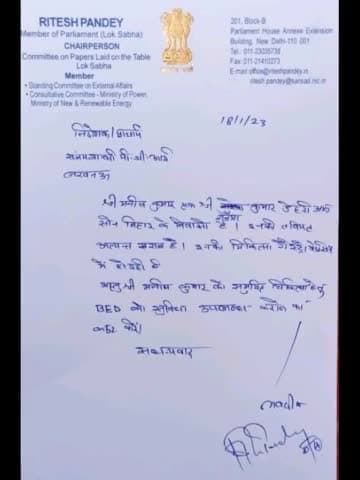 RITESH PANDEY
Member of Parliament (Lok Sabha)
CHAIRPERSON
Committee on Papers Laid on the Table
Lok Sabha
Member
• Standing Committee on External Affairs
• Consultative Committee - Ministry of Power,
Ministry of New & Renewable Energy
201, Block-B
Parliament House Annexe Extension
Building, New Delhi-110 001
Tel.: 011-23035738
Fax: 011-21410273
E-mail: office@riteshpandey.in
ritesh.pandey@sansad.nic.in
18/1/23
निदेशक/प्राचार्य
पी जी आई
लखनऊ
श्री मनीष कुमार श्री कुमार डेहरी
सोन बिहार के निवासी हैं। इनकी तबियत
अत्यन्त खराब है। इनकी चिकित्सा
में हो रही है
अतः श्री मनीष कुमार को समुचित चिकित्सा हेतु
BED की सुविधा उपलब्ध कराने का
कष्ट करें।
सधन्यवाद
भवदीय